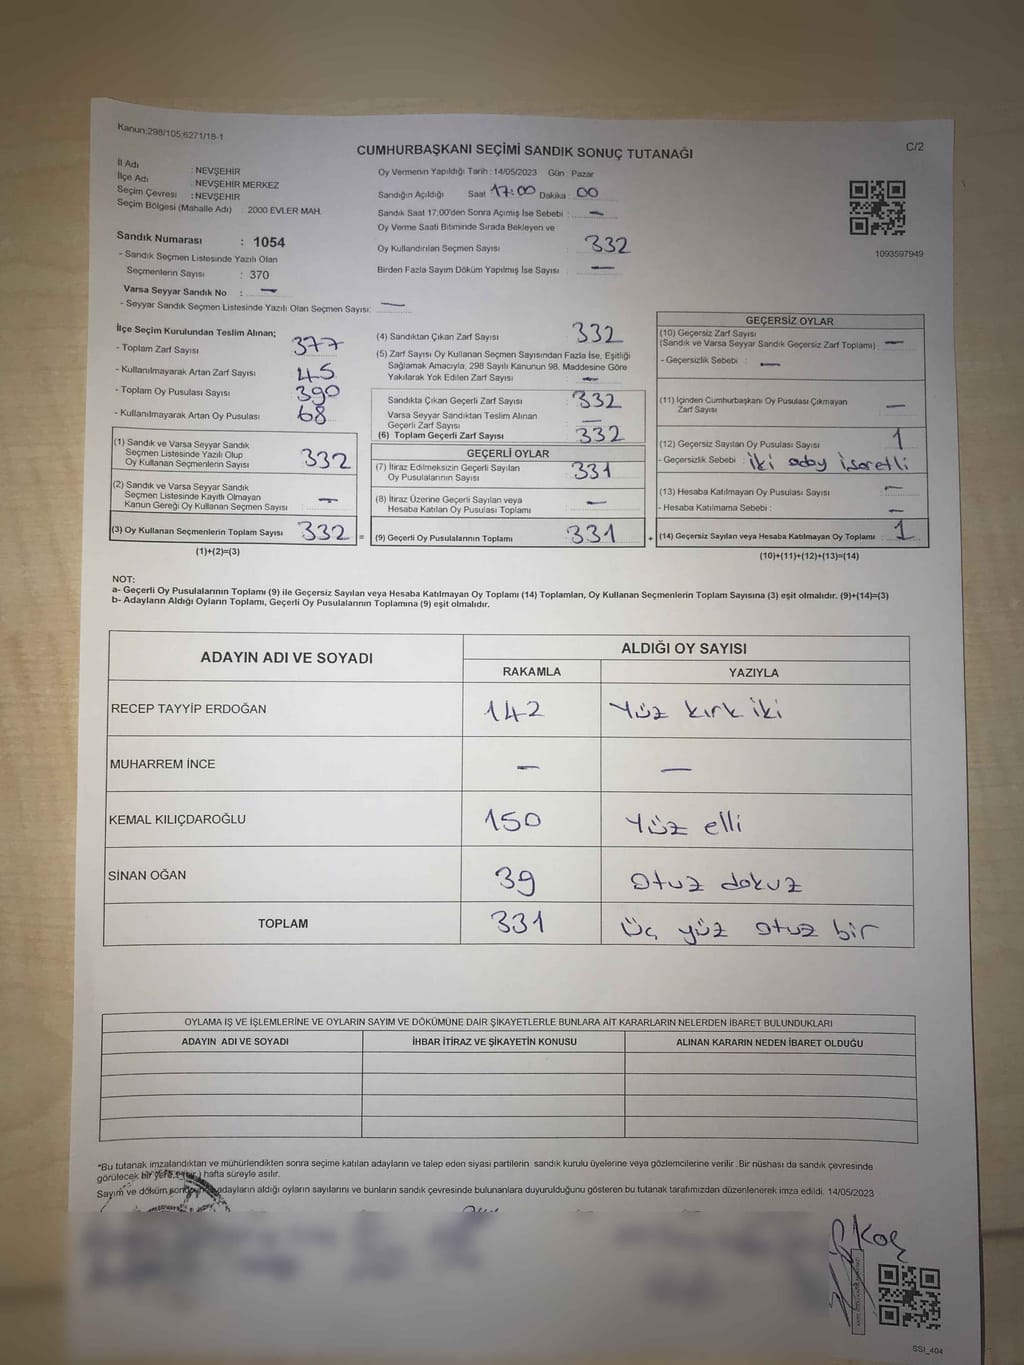 Kanun:298/105;6271/18-1
C/2
CUMHURBAŞKANI SEÇİMİ SANDIK SONUÇ TUTANAĞI
İl Adı : NEVŞEHİR
İlçe Adı : NEVŞEHİR MERKEZ
Seçim Çevresi : NEVŞEHİR
Seçim Bölgesi (Mahalle Adı) 2000 EVLER MAH.
Sandık Numarası : 1054
- Sandık Seçmen Listesinde Yazılı Olan
Seçmenlerin Sayısı : 370
Varsa Seyyar Sandık No : —
- Seyyar Sandık Seçmen Listesinde Yazılı Olan Seçmen Sayısı: —
Oy Vermenin Yapıldığı Tarih : 14/05/2023 Gün : Pazar
Sandığın Açıldığı Saat 17:00 Dakika : 00
Sandık Saat 17.00'den Sonra Açımış İse Sebebi : —
Oy Verme Saati Bitiminde Sırada Bekleyen ve
Oy Kullandırılan Seçmen Sayısı 332
Birden Fazla Sayım Döküm Yapılmış İse Sayısı —
1093597949
İlçe Seçim Kurulundan Teslim Alınan;
- Toplam Zarf Sayısı 377
- Kullanılmayarak Artan Zarf Sayısı 45
- Toplam Oy Pusulası Sayısı 390
- Kullanılmayarak Artan Oy Pusulası 68
(1) Sandık ve Varsa Seyyar Sandık
Seçmen Listesinde Yazılı Olup
Oy Kullanan Seçmenlerin Sayısı 332
(2) Sandık ve Varsa Seyyar Sandık
Seçmen Listesinde Kayıtlı Olmayan
Kanun Gereği Oy Kullanan Seçmen Sayısı —
(3) Oy Kullanan Seçmenlerin Toplam Sayısı 332 =
(1)+(2)=(3)
(4) Sandıktan Çıkan Zarf Sayısı 332
(5) Zarf Sayısı Oy Kullanan Seçmen Sayısından Fazla İse, Eşitliği
Sağlamak Amacıyla, 298 Sayılı Kanunun 98. Maddesine Göre
Yakılarak Yok Edilen Zarf Sayısı —
Sandıkta Çıkan Geçerli Zarf Sayısı 332
Varsa Seyyar Sandıktan Teslim Alınan
Geçerli Zarf Sayısı —
(6) Toplam Geçerli Zarf Sayısı 332
GEÇERLİ OYLAR
(7) İtiraz Edilmeksizin Geçerli Sayılan
Oy Pusulalarının Sayısı 331
(8) İtiraz Üzerine Geçerli Sayılan veya
Hesaba Katılan Oy Pusulası Toplamı —
(9) Geçerli Oy Pusulalarının Toplamı 331 +
GEÇERSİZ OYLAR
(10) Geçersiz Zarf Sayısı
(Sandık ve Varsa Seyyar Sandık Geçersiz Zarf Toplamı) : —
- Geçersizlik Sebebi : —
(11) İçinden Cumhurbaşkanı Oy Pusulası Çıkmayan
Zarf Sayısı —
(12) Geçersiz Sayılan Oy Pusulası Sayısı 1
- Geçersizlik Sebebi : iki aday işaretli
(13) Hesaba Katılmayan Oy Pusulası Sayısı —
- Hesaba Katılmama Sebebi : —
(14) Geçersiz Sayılan veya Hesaba Katılmayan Oy Toplamı : 1
(10)+(11)+(12)+(13)=(14)
NOT:
a- Geçerli Oy Pusulalarının Toplamı (9) ile Geçersiz Sayılan veya Hesaba Katılmayan Oy Toplamı (14) Toplamları, Oy Kullanan Seçmenlerin Toplam Sayısına (3) eşit olmalıdır. (9)+(14)=(3)
b- Adayların Aldığı Oyların Toplamı, Geçerli Oy Pusulalarının Toplamına (9) eşit olmalıdır.
ADAYIN ADI VE SOYADI ALDIĞI OY SAYISI
RAKAMLA YAZIYLA
RECEP TAYYİP ERDOĞAN 142 Yüz kırk iki
MUHARREM İNCE — —
KEMAL KILIÇDAROĞLU 150 Yüz elli
SİNAN OĞAN 39 Otuz dokuz
TOPLAM 331 Üç yüz otuz bir
OYLAMA İŞ VE İŞLEMLERİNE VE OYLARIN SAYIM VE DÖKÜMÜNE DAİR ŞİKAYETLERLE BUNLARA AİT KARARLARIN NELERDEN İBARET BULUNDUKLARI
ADAYIN ADI VE SOYADI İHBAR İTİRAZ VE ŞİKAYETİN KONUSU ALINAN KARARIN NEDEN İBARET OLDUĞU
*Bu tutanak imzalandıktan ve mühürlendikten sonra seçime katılan adayların ve talep eden siyasi partilerin sandık kurulu üyelerine veya gözlemcilerine verilir. Bir nüshası da sandık çevresinde
görülecek bir yere (bir) hafta süreyle asılır.
Sayım ve döküm adayların aldığı oyların sayılarını ve bunların sandık çevresinde bulunanlara duyurulduğunu gösteren bu tutanak tarafımızdan düzenlenerek imza edildi. 14/05/2023
Koç
SSI_404